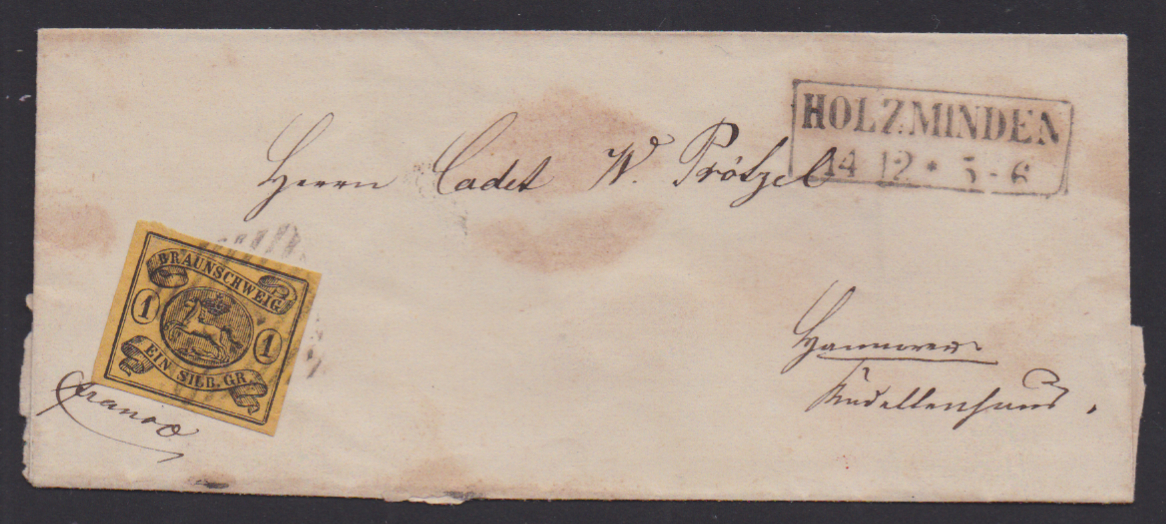 HOLZMINDEN
14 12 * 5-6
Herrn Cadet W. Prötzel
BRAUNSCHWEIG
1 1
EIN SILB. GR.
Hannover
franco